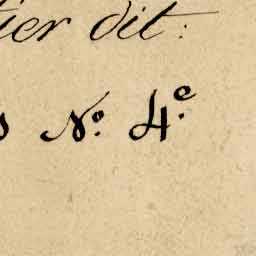 tier dit:
s Nº. 4.e